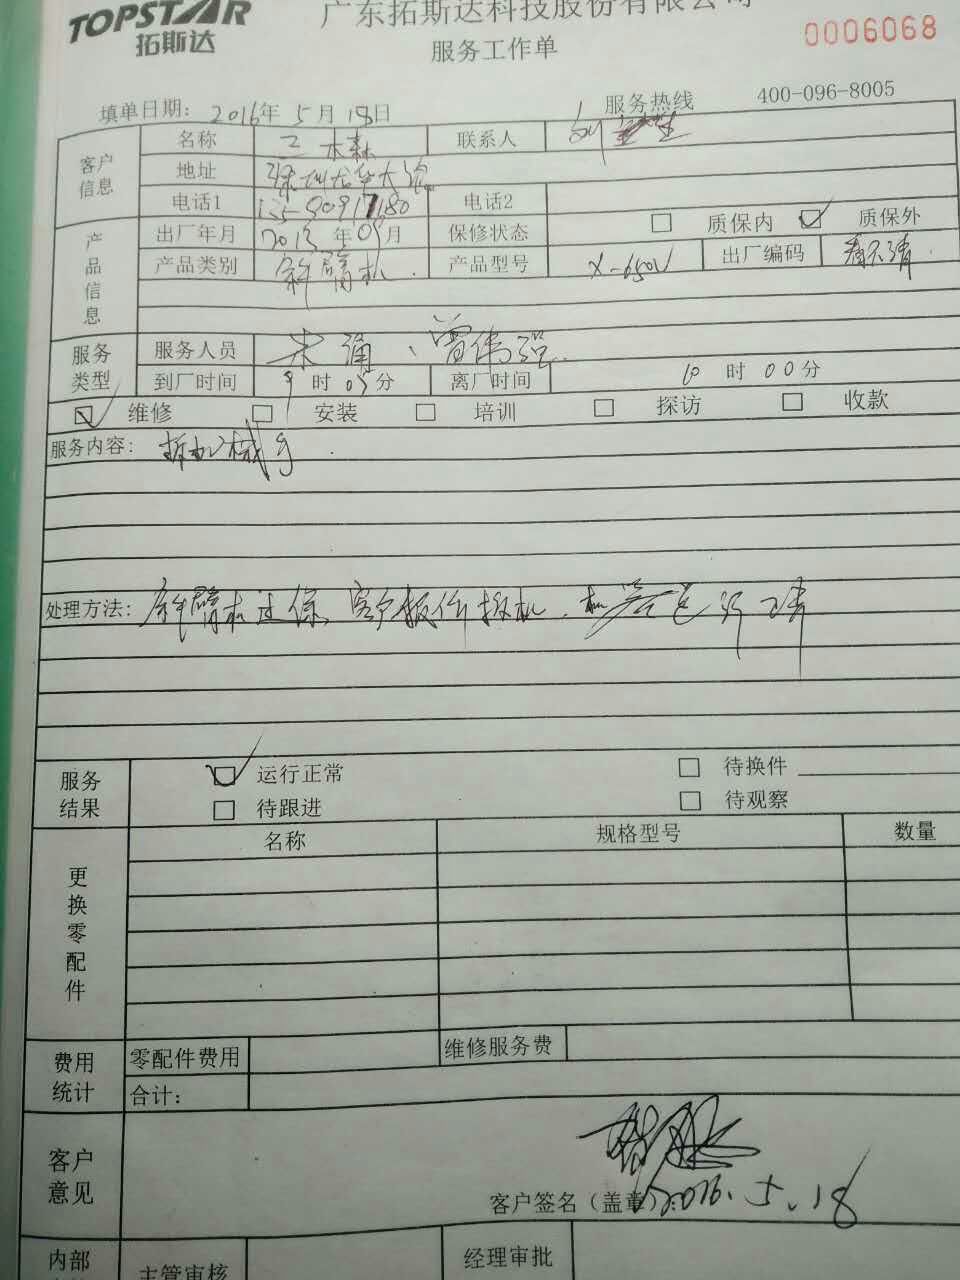 TOPSTAR 广东拓斯达科技股份有限公司
拓斯达 服务工作单 0006068
填单日期: 2016年 5月18日 服务热线 400-096-8005
客户信息
名称 三木森 联系人
地址 深圳龙华大浪
电话1 电话2
产品信息
出厂年月 2013年09月 保修状态 质保内 质保外
产品类别 斜臂机. 产品型号 X-650V 出厂编码 看不清.
服务类型
服务人员 朱涌、曾伟强.
到厂时间 9时05分 离厂时间 10时00分
维修 安装 培训 探访 收款
服务内容: 拆机械手.
处理方法: 斜臂机过保, 客户报价拆机.
服务结果
运行正常 待换件
待跟进 待观察
更换零配件
名称 规格型号 数量
费用统计
零配件费用 维修服务费
合计:
客户意见
客户签名（盖章）: 2016.5.18
内部
主管审核 经理审批